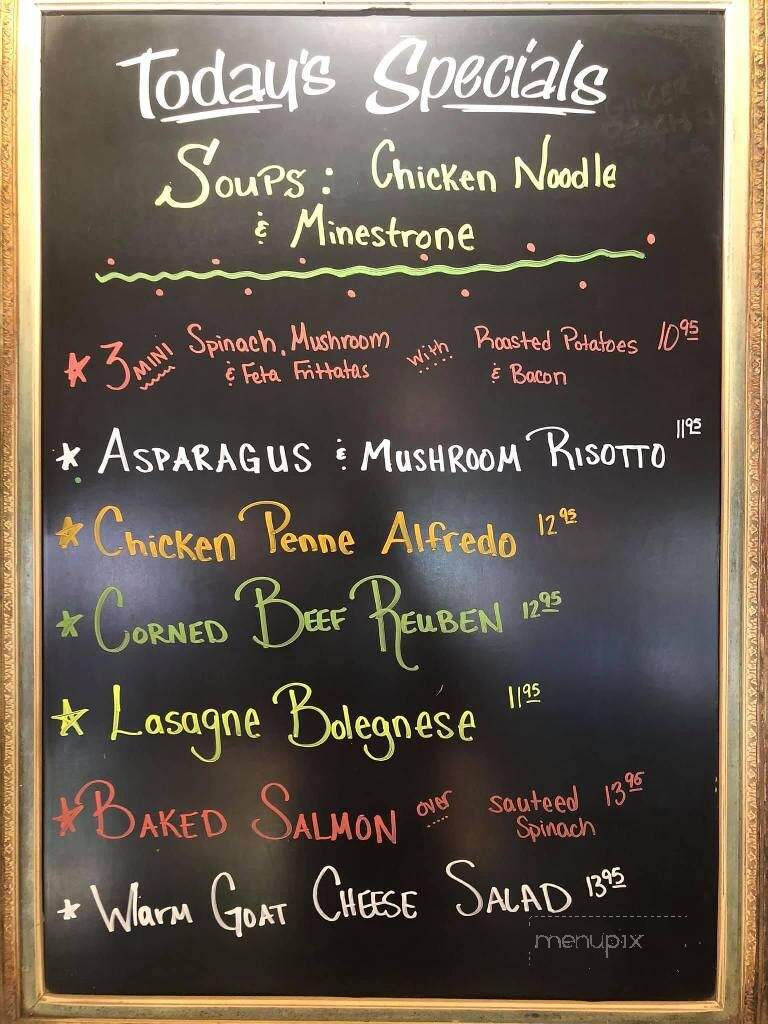 Today's Specials
Soups: Chicken Noodle
& Minestrone
3 MINI Spinach, Mushroom with Roasted Potatoes 10 95
& Feta Frittatas & Bacon
ASPARAGUS & MUSHROOM RISOTTO 11 95
Chicken Penne Alfredo 12 95
CORNED BEEF REUBEN 12 95
Lasagne Bolegnese 11 95
BAKED SALMON over sauteed 13 95
Spinach
Warm GOAT CHEESE SALAD 13 95
menupix